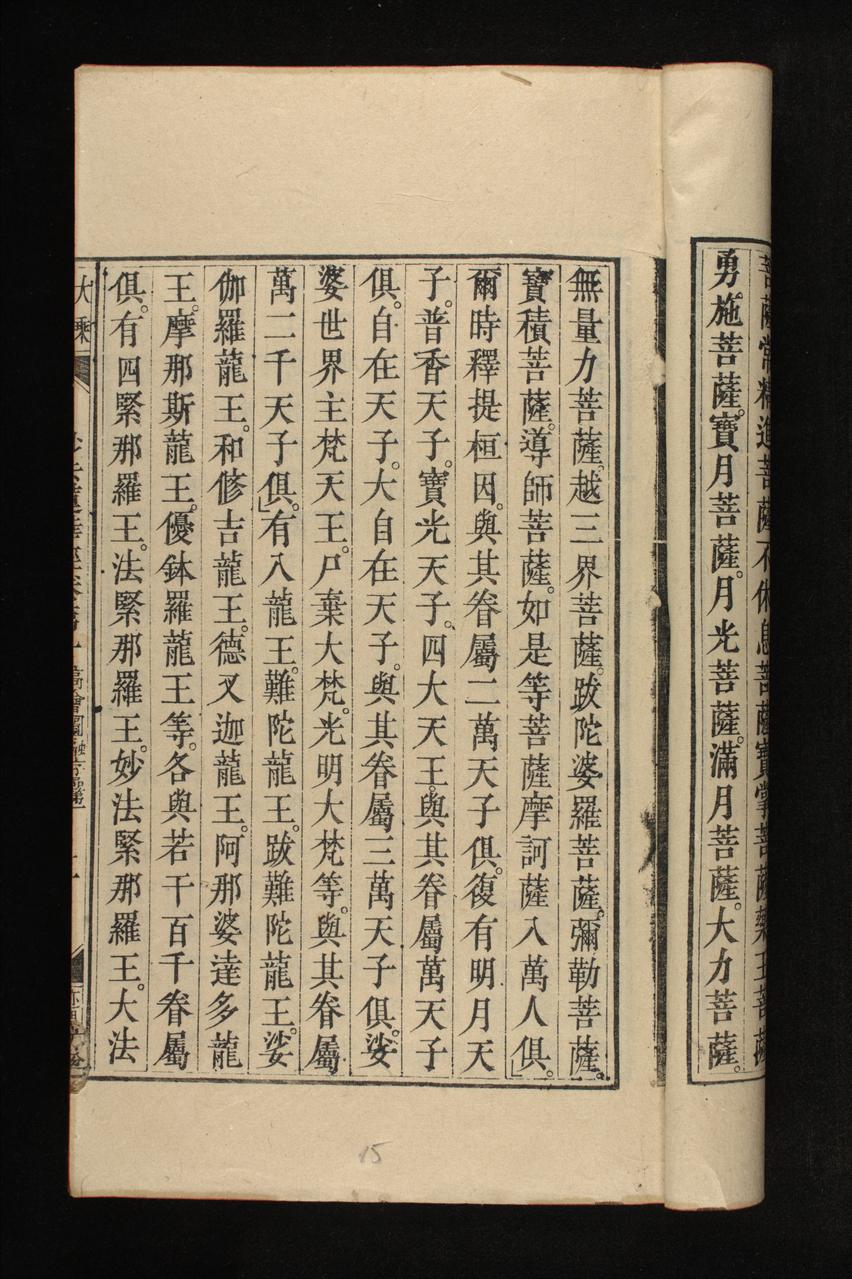 菩薩常精進菩薩不休息菩薩寶掌菩薩藥王菩薩
勇施菩薩。寶月菩薩。月光菩薩。滿月菩薩。大力菩薩。
無量力菩薩。越三界菩薩。跋陀婆羅菩薩。彌勒菩薩。
寶積菩薩。導師菩薩。如是等菩薩摩訶薩八萬人俱。」
爾時釋提桓因。與其眷屬二萬天子俱。復有明月天
子。普香天子。寶光天子。四大天王。與其眷屬萬天子
俱。自在天子。大自在天子。與其眷屬三萬天子俱。娑
婆世界主梵天王。尸棄大梵。光明大梵等。與其眷屬
萬二千天子俱。」有八龍王。難陀龍王。跋難陀龍王。娑
伽羅龍王。和修吉龍王。德叉迦龍王。阿那婆達多龍
王。摩那斯龍王。優鉢羅龍王等。各與若干百千眷屬
俱。有四緊那羅王。法緊那羅王。妙法緊那羅王。大法
大乘
15